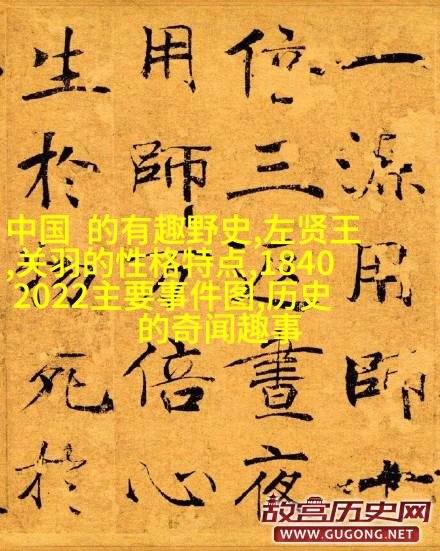 一源用師十
倍三返晝夜
用師万倍心
生於物死於
中国 的有趣野史,左贤王
,关羽的性格特点,1840
2022主要事件图,历史
的奇闻趣事
故宫历史网
WWW.GUGONG.NET